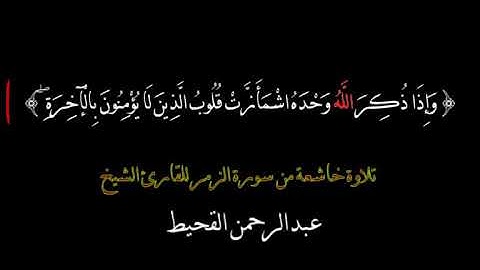 ﴿ وَإِذَا ذُكِرَ اللَّهُ وَحْدَهُ اشْمَأَزَّتْ قُلُوبُ الَّذِينَ لَا يُؤْمِنُونَ بِالْآخِرَةِ ۖ ﴾
تلاوة خاشعة من سورة الزمر للقارئ الشيخ
عبدالرحمن القحيط